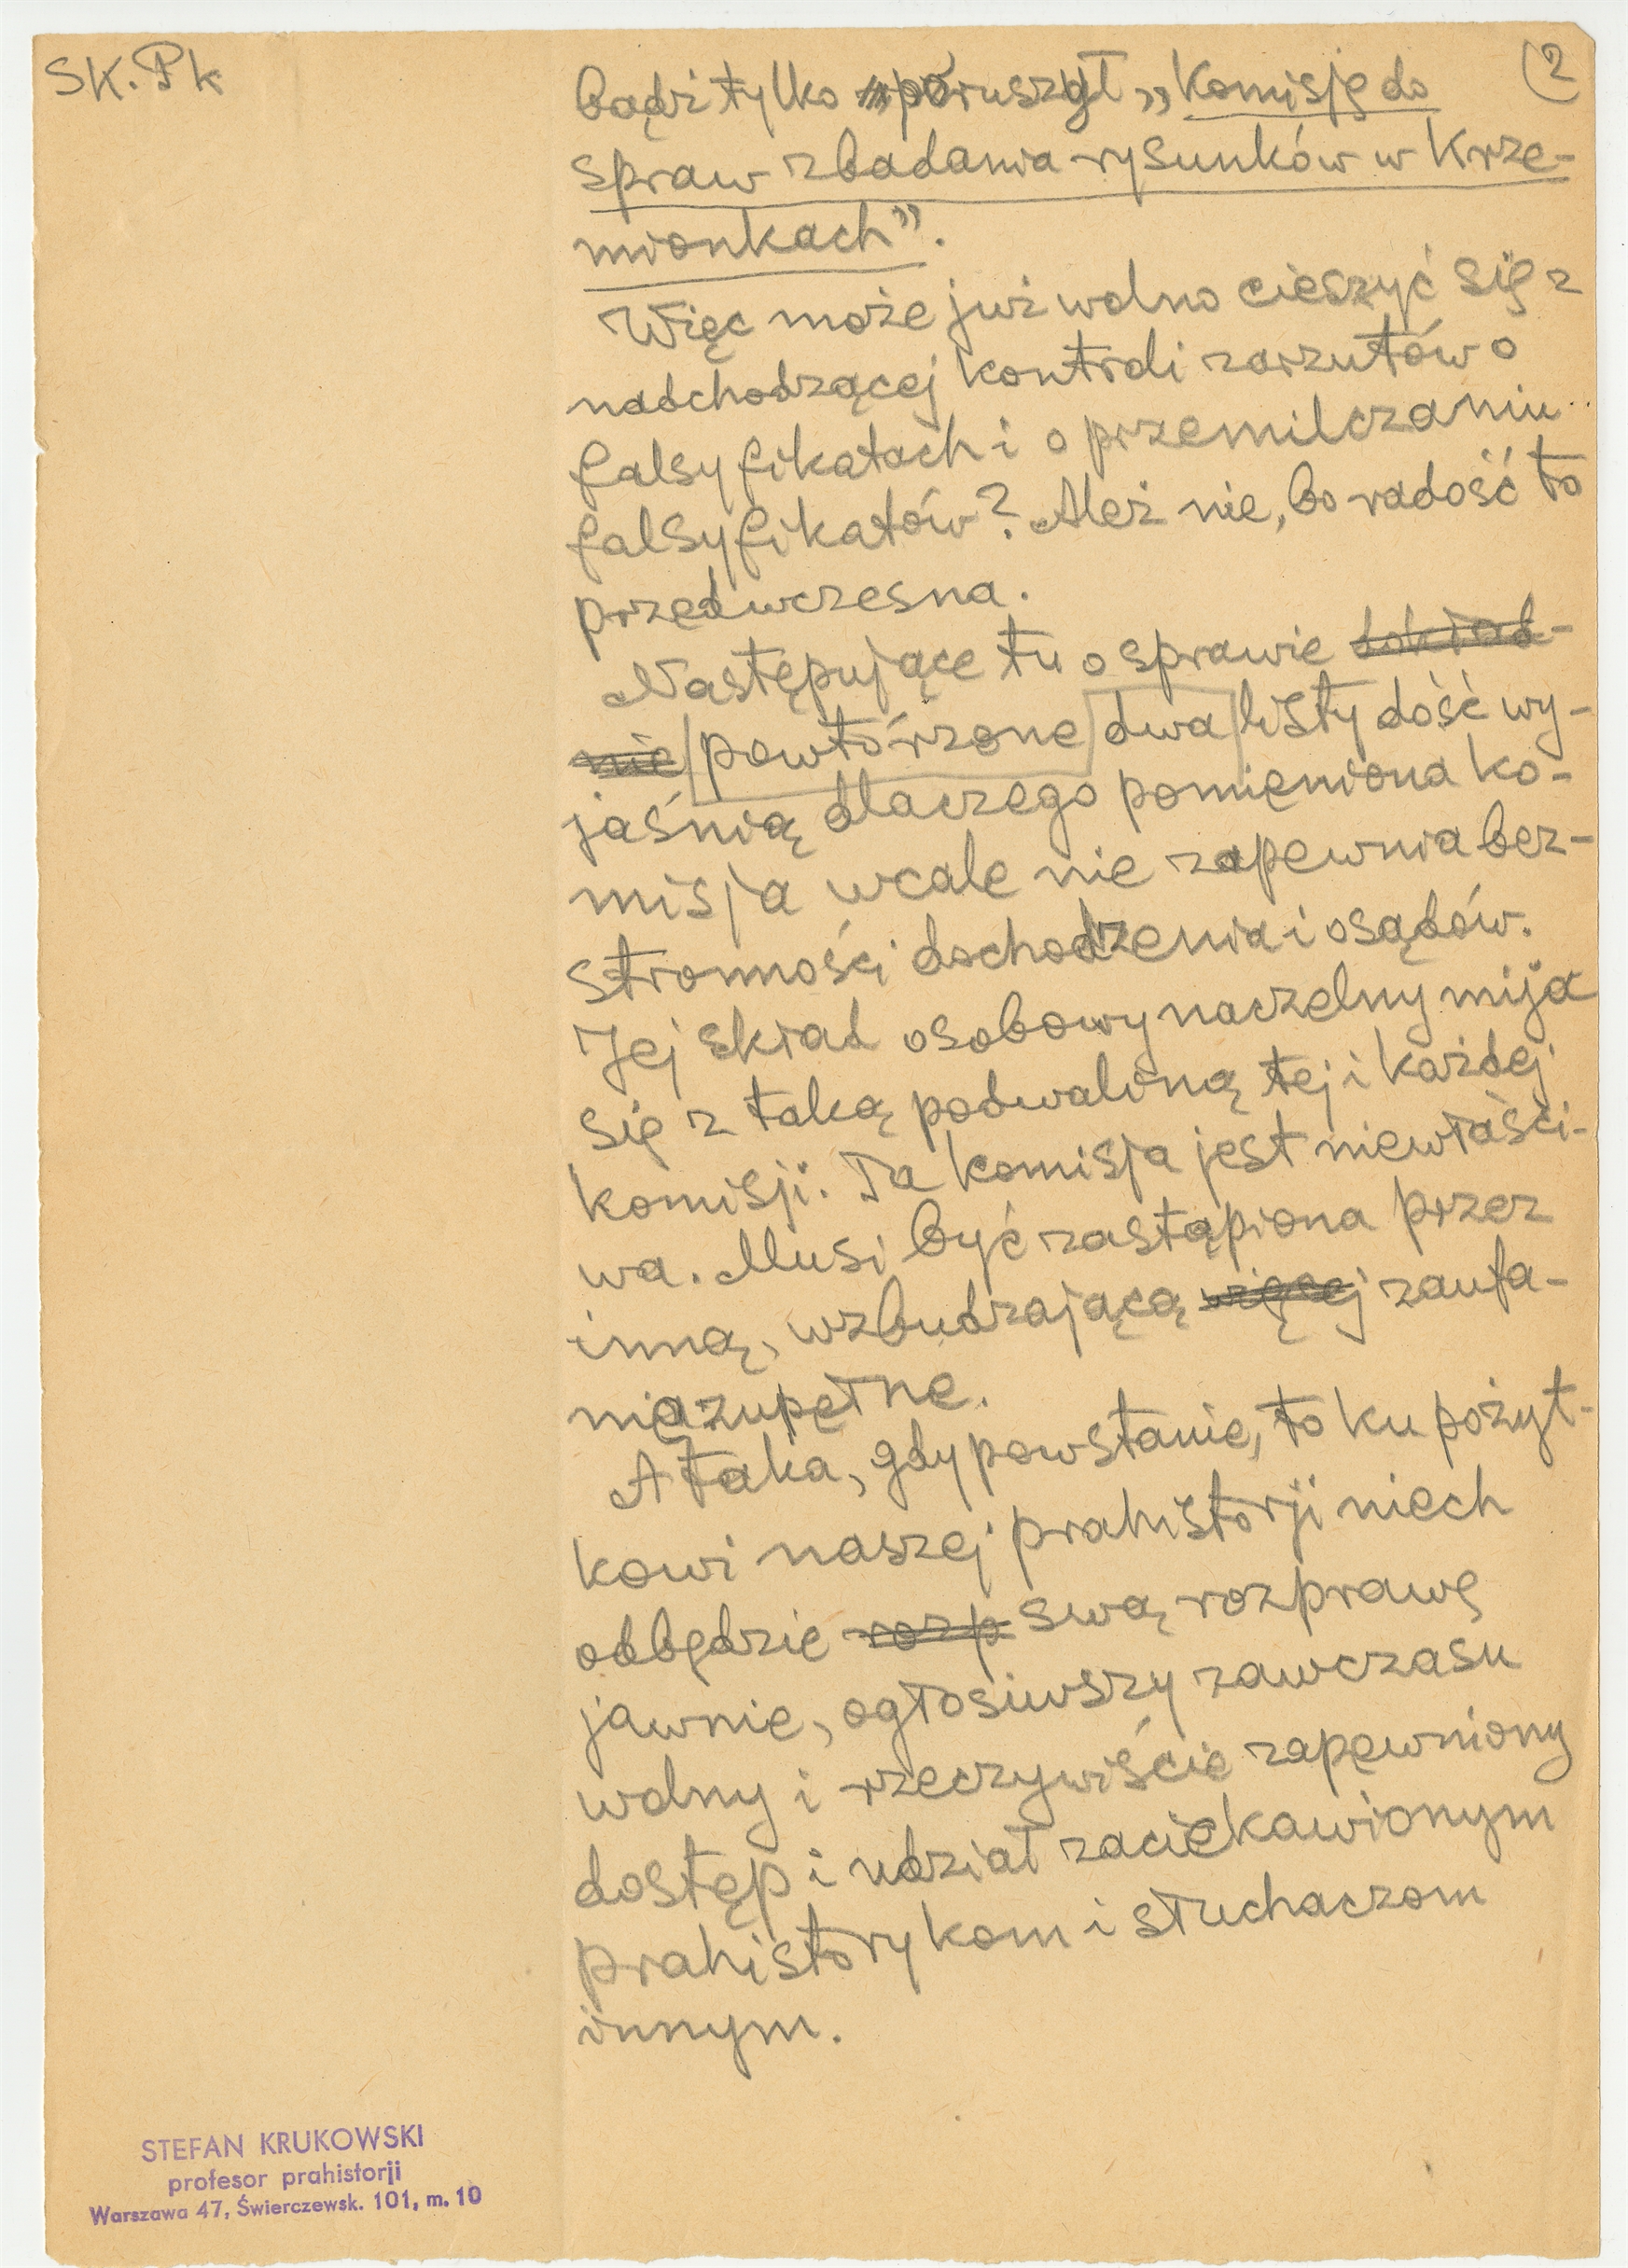 SK. Pk
2
bądź tylko poruszył „Komisję do
spraw zbadania rysunków w Krze-
mionkach”.
Więc może już wolno cieszyć się z
nadchodzącej kontroli zarzutów o
falsyfikatach i o przemilczaniu
falsyfikatów? Ależ nie, bo radość to
przedwczesna.
Następujące tu o sprawie dokład-
nie powtórzone dwa listy dość wy-
jaśnią dlaczego pomieniona ko-
misja wcale nie zapewnia bez-
stronności dochodzenia i osądów.
Jej skład osobowy naczelny mija
się z taką podwaliną tej i każdej
komisji. Ta komisja jest niewłaści-
wa. Musi być zastąpiona przez
inną, wzbudzającą więcej zaufa-
nie zupełne.
A taka, gdy powstanie, to ku pożyt-
kowi naszej prahistorji niech
odbędzie rozp swą rozprawę
jawnie, ogłosiwszy zawczasu
wolny i rzeczywiście zapewniony
dostęp i udział zaciekawionym
prahistorykom i słuchaczom
innym.
STEFAN KRUKOWSKI
profesor prahistorji
Warszawa 47, Świerczewsk. 101, m. 10